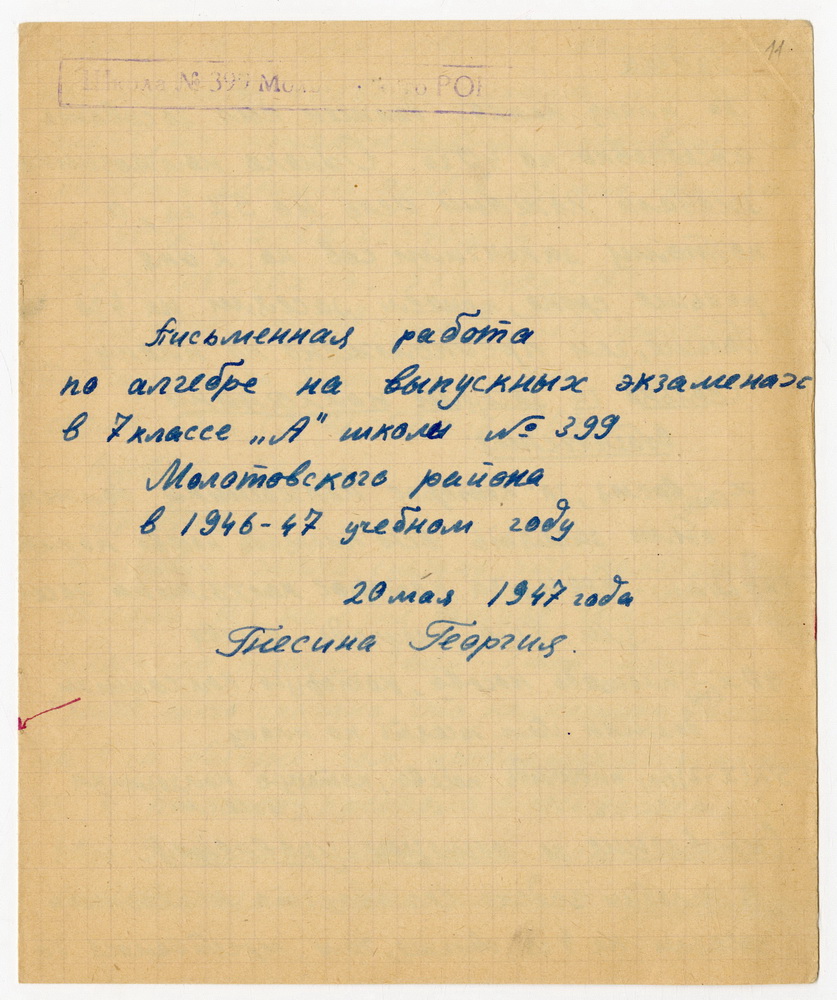 11.
Школа № 399 РОН
Письменная работа
по алгебре на выпускных экзаменах
в 7 классе „А" школы № 399
Молотовского района
в 1946-47 учебном году
20 мая 1947 года
Гнесина Георгия.